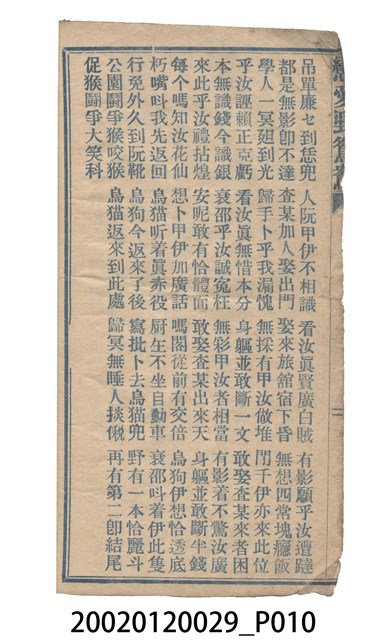 戀愛野鴛鴦
吊單廉七到恁兜 人阮甲伊不相識 看汝眞賢廣白賊 有影願乎汝遭躂
都是無影卽不達 查某加人娶出門 娶來旅舘宿下昏 無想四常塊癮飯
學人一冥𨑨到光 歸手卜乎我漏愧 無採有甲汝做堆 閂千伊亦來此位
乎汝誣賴正克虧 看汝眞無惜本分 身軀並敢斷一文 敢娶查某來者困
本無識錢今識銀 衰邵乎汝誠寃枉 無彩甲汝者相當 有影着不驚汝廣
來此乎汝禮拈煌 安呢敢有恰體面 敢娶查某出來天 身軀並敢斷半錢
每个嗎知汝花仙 想卜甲伊加廣話 嗎閣從前有交倍 烏狗伊想恰透底
朽嘴叫我先返回 烏猫听着眞赤役 厨生不坐自動車 衰邵叫着伊此隻
行兎外久到阮靴 烏狗今返來了後 寫批卜去烏猫兜 野有一本恰麗斗
公園鬪爭猴咬猴 烏猫返來到此處 歸冥無睡人掞 再有第二卽結尾
促猴鬪爭大笑科
20020120029_P010